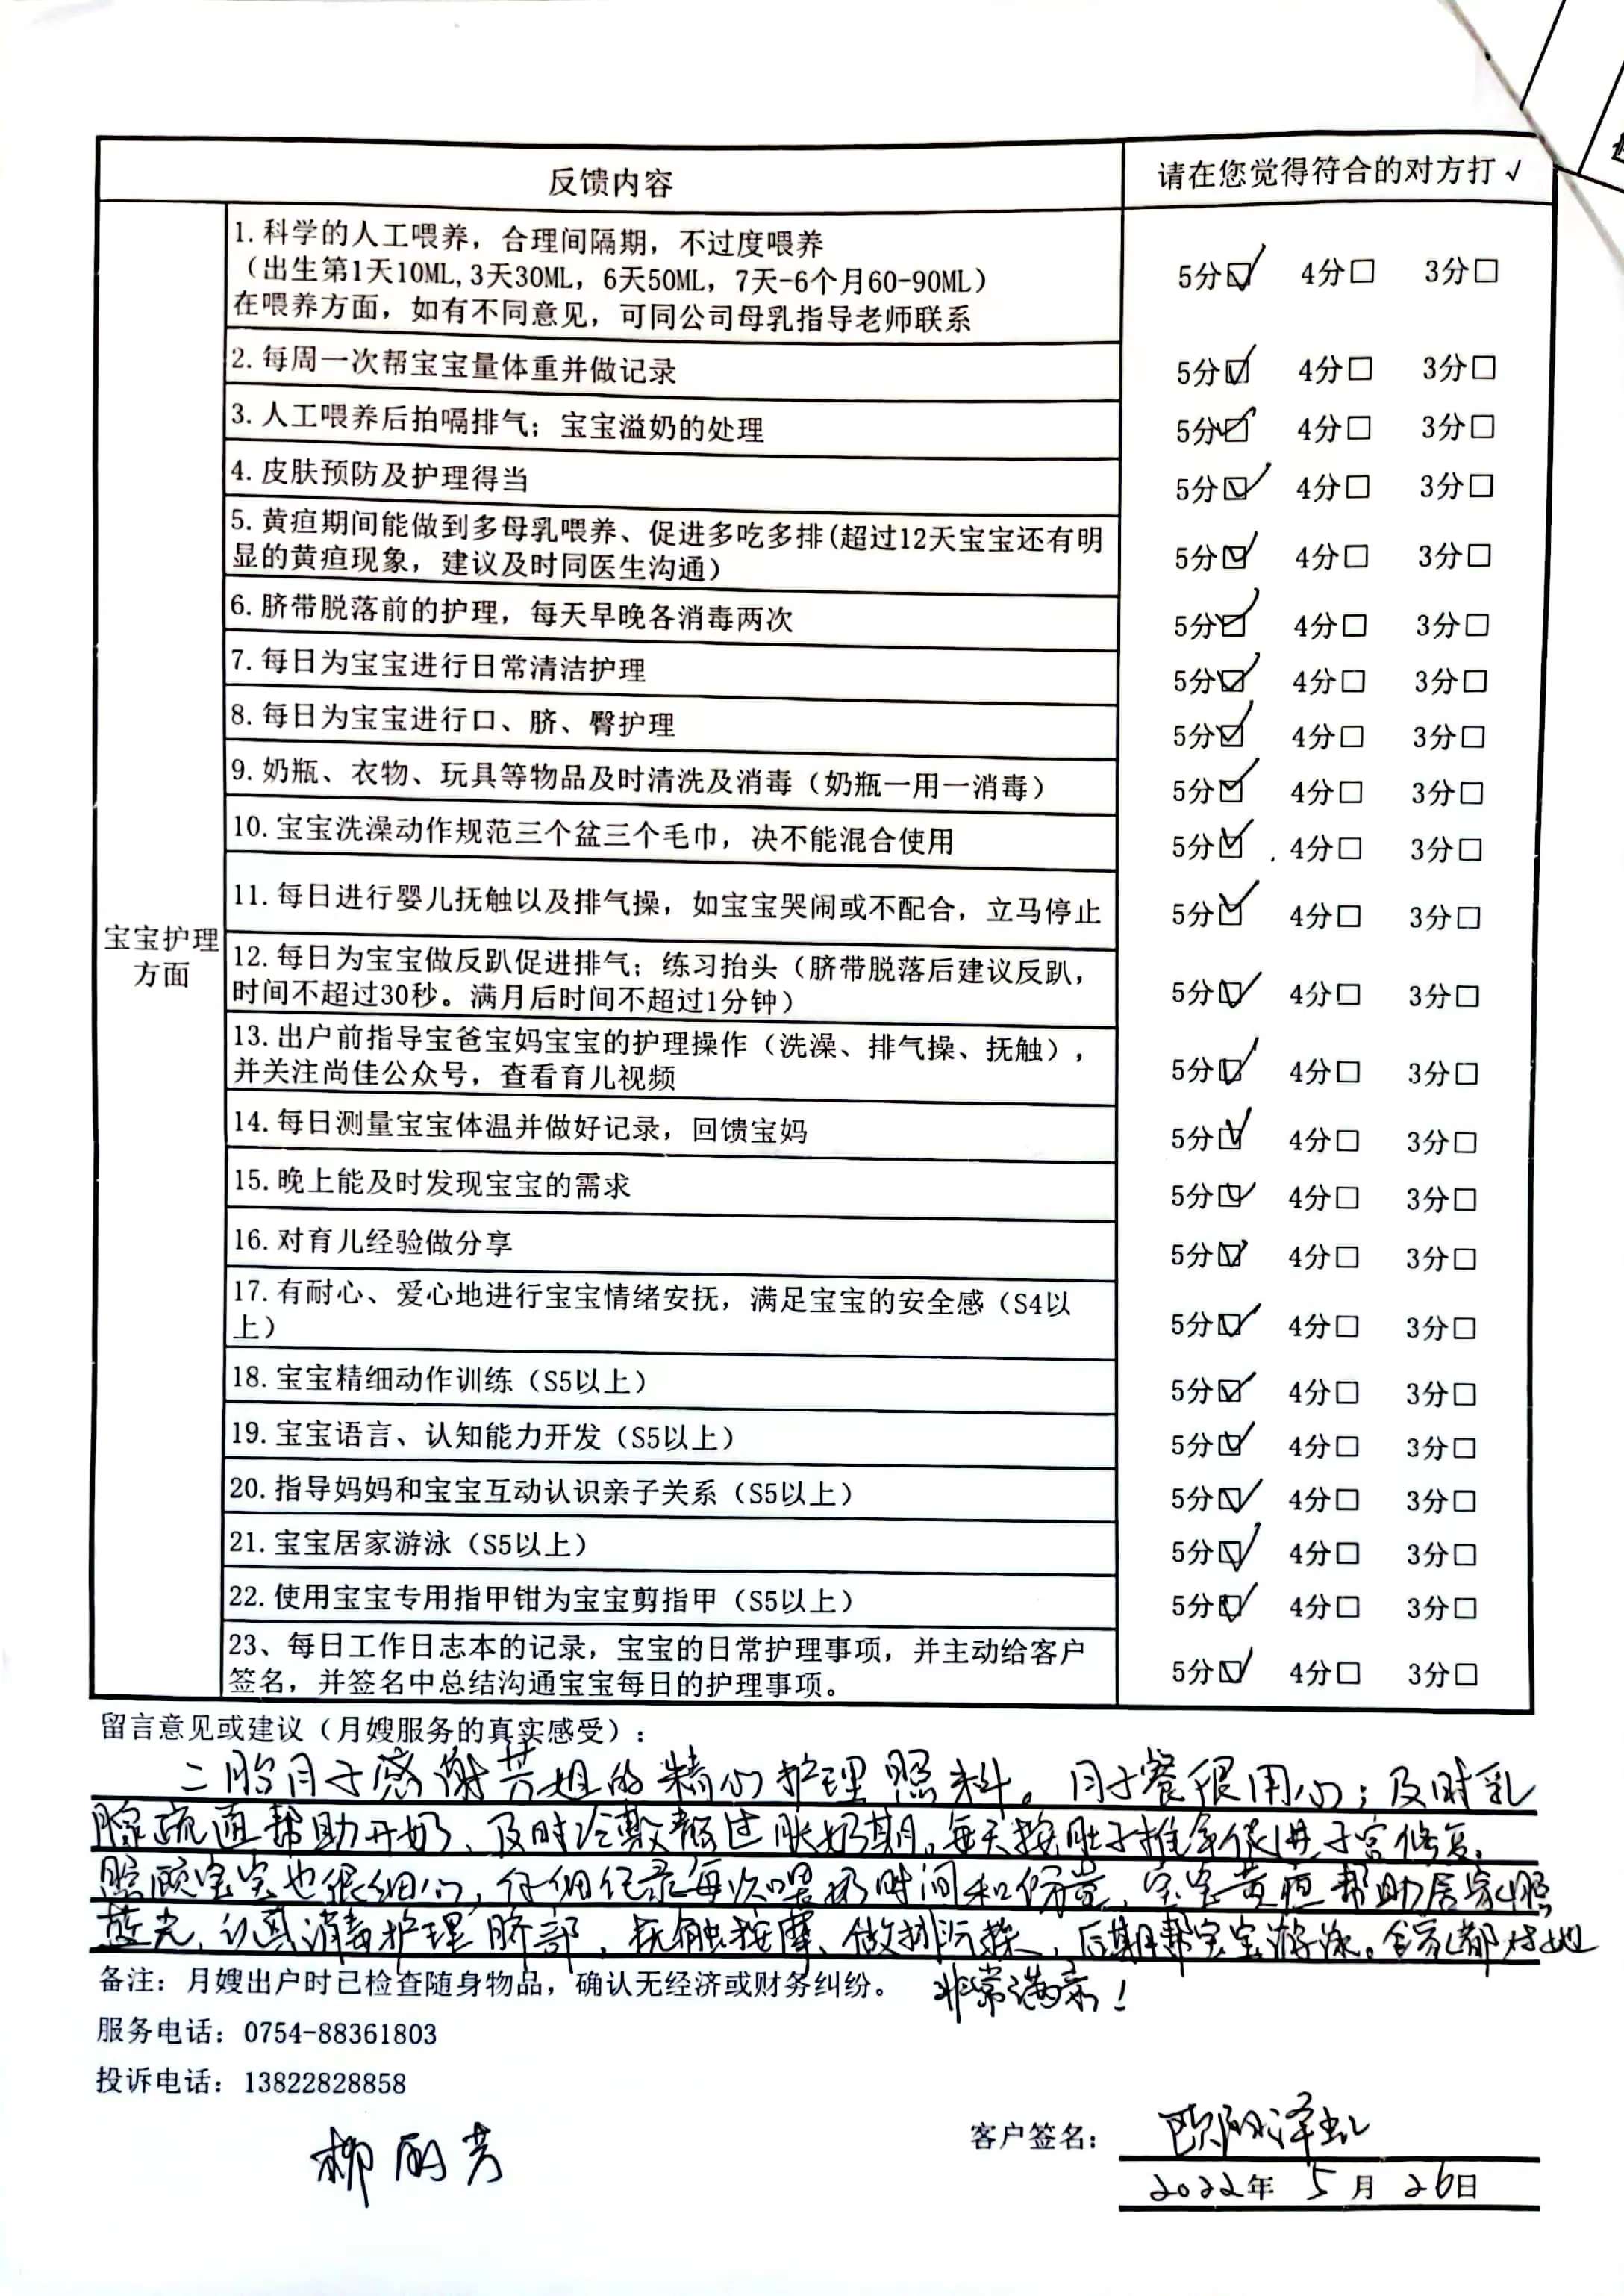 反馈内容
请在您觉得符合的对方打√
宝宝护理
方面
1.科学的人工喂养，合理间隔期，不过度喂养
（出生第1天10ML,3天30ML，6天50ML，7天-6个月60-90ML）
在喂养方面，如有不同意见，可同公司母乳指导老师联系
5分☑ 4分□ 3分□
2.每周一次帮宝宝量体重并做记录
5分☑ 4分□ 3分□
3.人工喂养后拍嗝排气；宝宝溢奶的处理
5分☑ 4分□ 3分□
4.皮肤预防及护理得当
5分☑ 4分□ 3分□
5.黄疸期间能做到多母乳喂养、促进多吃多排(超过12天宝宝还有明
显的黄疸现象，建议及时同医生沟通）
5分☑ 4分□ 3分□
6.脐带脱落前的护理，每天早晚各消毒两次
5分☑ 4分□ 3分□
7.每日为宝宝进行日常清洁护理
5分☑ 4分□ 3分□
8.每日为宝宝进行口、脐、臀护理
5分☑ 4分□ 3分□
9.奶瓶、衣物、玩具等物品及时清洗及消毒（奶瓶一用一消毒）
5分☑ 4分□ 3分□
10.宝宝洗澡动作规范三个盆三个毛巾，决不能混合使用
5分☑ 4分□ 3分□
11.每日进行婴儿抚触以及排气操，如宝宝哭闹或不配合，立马停止
5分☑ 4分□ 3分□
12.每日为宝宝做反趴促进排气；练习抬头（脐带脱落后建议反趴，
时间不超过30秒。满月后时间不超过1分钟）
5分☑ 4分□ 3分□
13.出户前指导宝爸宝妈宝宝的护理操作（洗澡、排气操、抚触），
并关注尚佳公众号，查看育儿视频
5分☑ 4分□ 3分□
14.每日测量宝宝体温并做好记录，回馈宝妈
5分☑ 4分□ 3分□
15.晚上能及时发现宝宝的需求
5分☑ 4分□ 3分□
16.对育儿经验做分享
5分☑ 4分□ 3分□
17.有耐心、爱心地进行宝宝情绪安抚，满足宝宝的安全感（S4以
上）
5分☑ 4分□ 3分□
18.宝宝精细动作训练（S5以上）
5分☑ 4分□ 3分□
19.宝宝语言、认知能力开发（S5以上）
5分☑ 4分□ 3分□
20.指导妈妈和宝宝互动认识亲子关系（S5以上）
5分☑ 4分□ 3分□
21.宝宝居家游泳（S5以上）
5分☑ 4分□ 3分□
22.使用宝宝专用指甲钳为宝宝剪指甲（S5以上）
5分☑ 4分□ 3分□
23、每日工作日志本的记录，宝宝的日常护理事项，并主动给客户
签名，并签名中总结沟通宝宝每日的护理事项。
5分☑ 4分□ 3分□
留言意见或建议（月嫂服务的真实感受）：
二胎月子感谢芳姐的精心护理照料。月子餐很用心；及时乳
腺疏通帮助开奶、及时冷敷度过胀奶期。每天按肚子推拿促进子宫修复。
照顾宝宝也很细心，仔细记录每次喂奶时间和份量，宝宝黄疸帮助居家照
蓝光，认真消毒护理脐部，抚触按摩、做排气操，后期帮宝宝游泳。全家都对她
非常满意！
备注：月嫂出户时已检查随身物品，确认无经济或财务纠纷。
服务电话：0754-88361803
投诉电话：13822828858
柳丽芳
客户签名：欧阳泽虹
2022年 5 月 26日